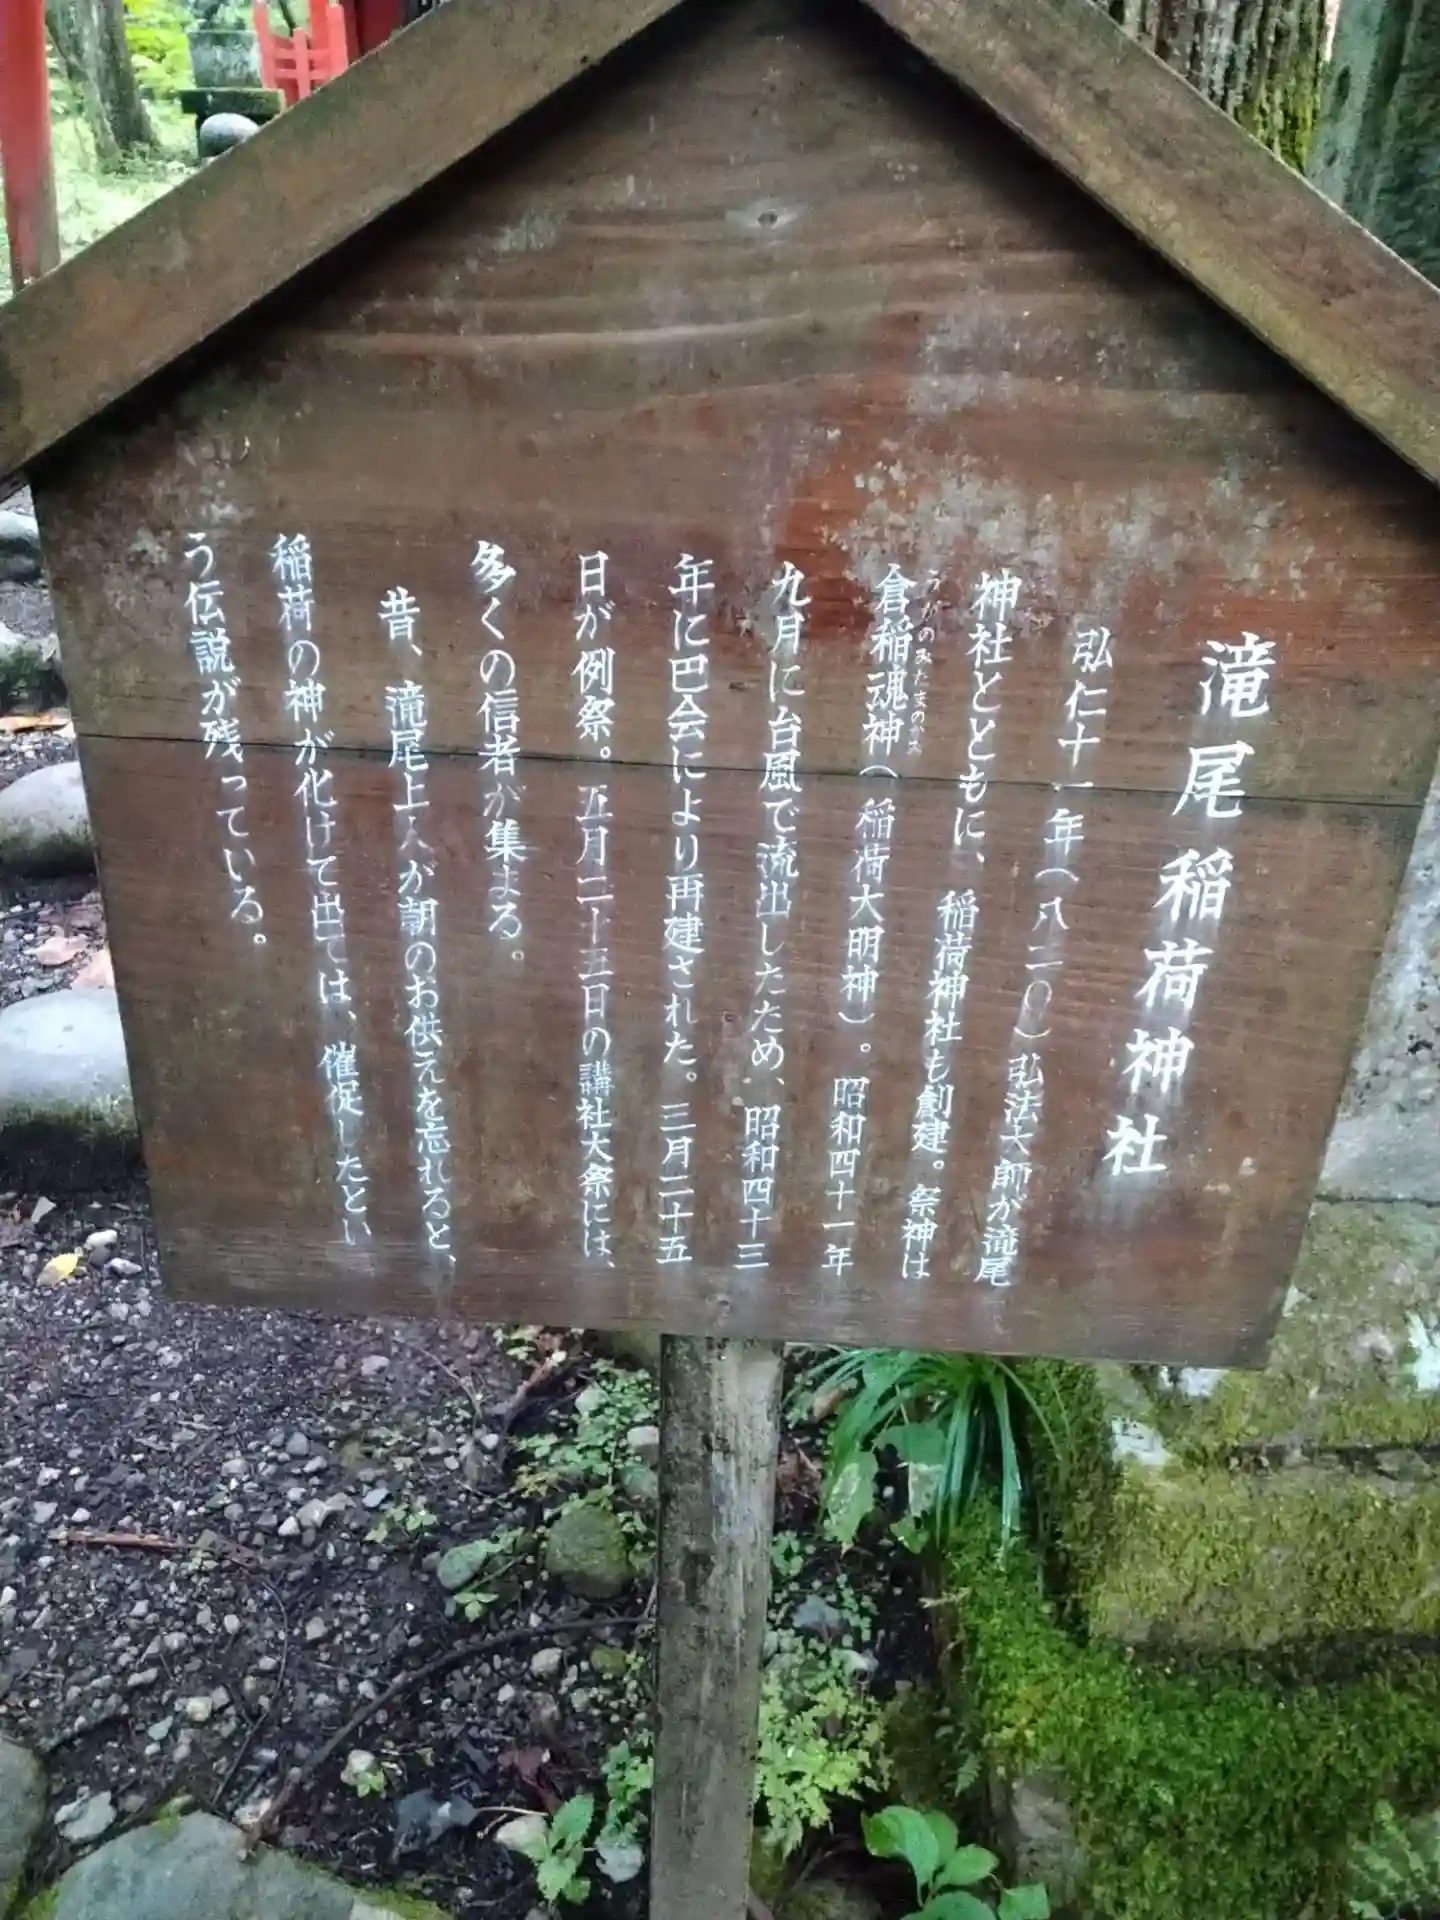 滝尾稲荷神社
弘仁十一年（八二〇）弘法大師が滝尾
神社とともに、稲荷神社も創建。祭神は
倉稲魂神（稲荷大明神）。昭和四十一年
うがのみたまのかみ
九月に台風で流出したため、昭和四十三
年に巴会により再建された。三月二十五
日が例祭。五月二十五日の講社大祭には、
多くの信者が集まる。
昔、滝尾上人が朝のお供えを忘れると、
稲荷の神が化けて出ては、催促したとい
う伝説が残っている。